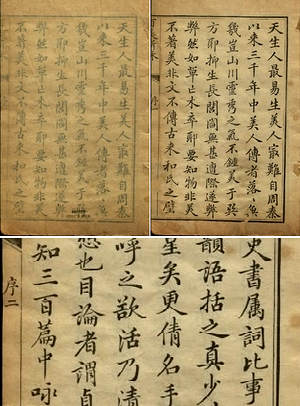 天生人最易生美人寂難自周秦
以來三千年中美人傳者落
幾豈山川靈秀之氣不鍾美于
方耶抑生長閨閫無甚遺際遂
然如草亡木卒耶要知物非美
不著美非文不傳古来和氏之璧
天生人最易生美人寂難自周秦
以來三千年中美人傳者落
幾豈山川靈秀之氣不鍾美于
方耶抑生長閨閫無甚遺際遂
然如草亡木卒耶要知物非美
不著美非文不傳古来和氏之璧
史書属詞比事
韻語括之真少
矣更倩名手
呼之欲活乃清
也目論者謂貞
知三百篇中咏
序二